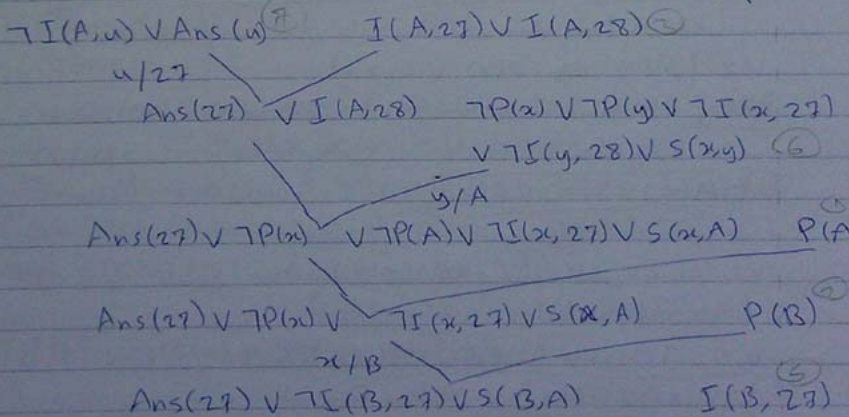 ¬I(A,u) ∨ Ans(u) ⑦ I(A,27) ∨ I(A,28) ②
u/27
Ans(27) ∨ I(A,28) ¬P(x) ∨ ¬P(y) ∨ ¬I(x,27)
∨ ¬I(y,28) ∨ S(x,y) ⑥
y/A
Ans(27) ∨ ¬P(x) ∨ ¬P(A) ∨ ¬I(x,27) ∨ S(x,A) P(A ①
Ans(27) ∨ ¬P(x) ∨ ¬I(x,27) ∨ S(x,A) P(B) ②
x/B
Ans(27) ∨ ¬I(B,27) ∨ S(B,A) I(B,27) ⑤